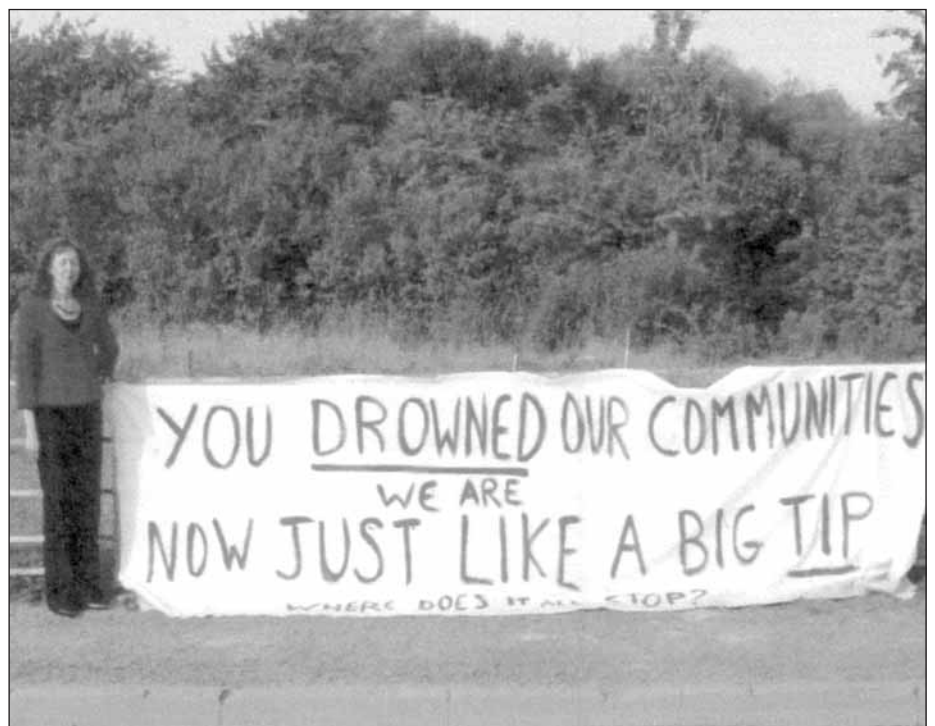 YOU DROWNED OUR COMMUNITIES
WE ARE
NOW JUST LIKE A BIG TIP
WHERE DOES IT ALL STOP?